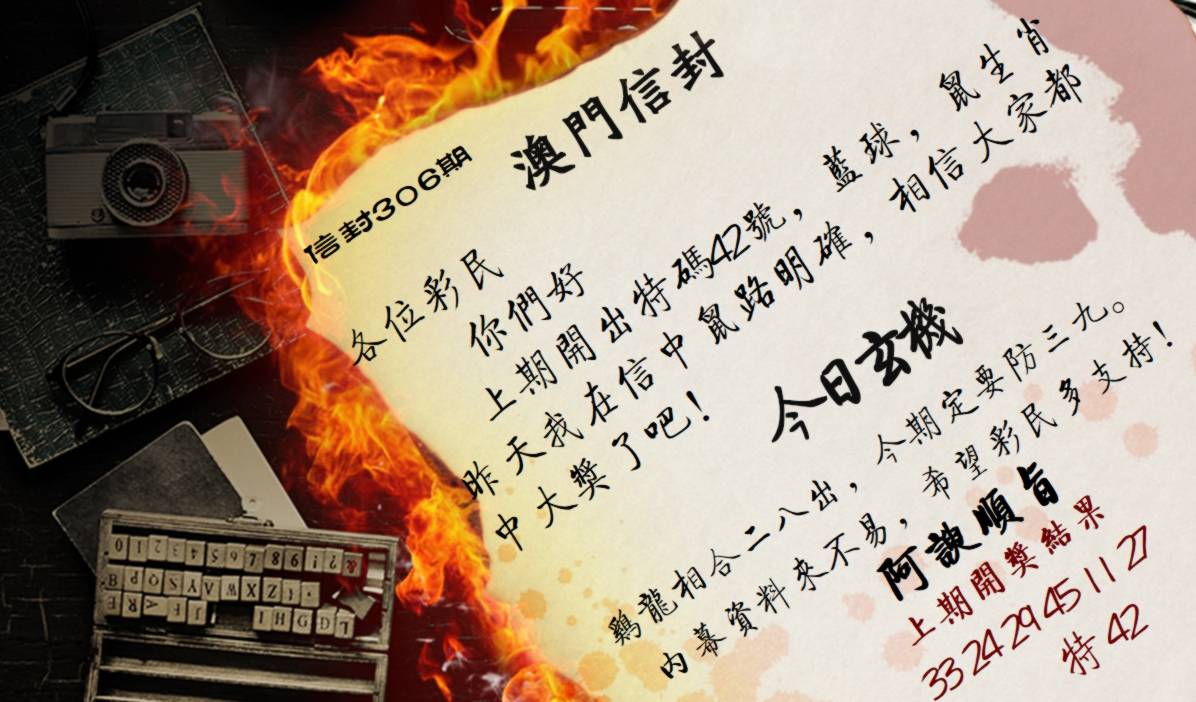 澳門信封
信封306期
各位彩民
你們好
上期開出特碼42號，藍球，鼠生肖
昨天我在信中鼠路明確，相信大家都
中大獎了吧！
今日玄機
鷄龍相合二八出，今期定要防三九。
内幕資料來不易，希望彩民多支持！
阿諛順旨
上期開獎結果
33 24 29 45 11 27
特 42